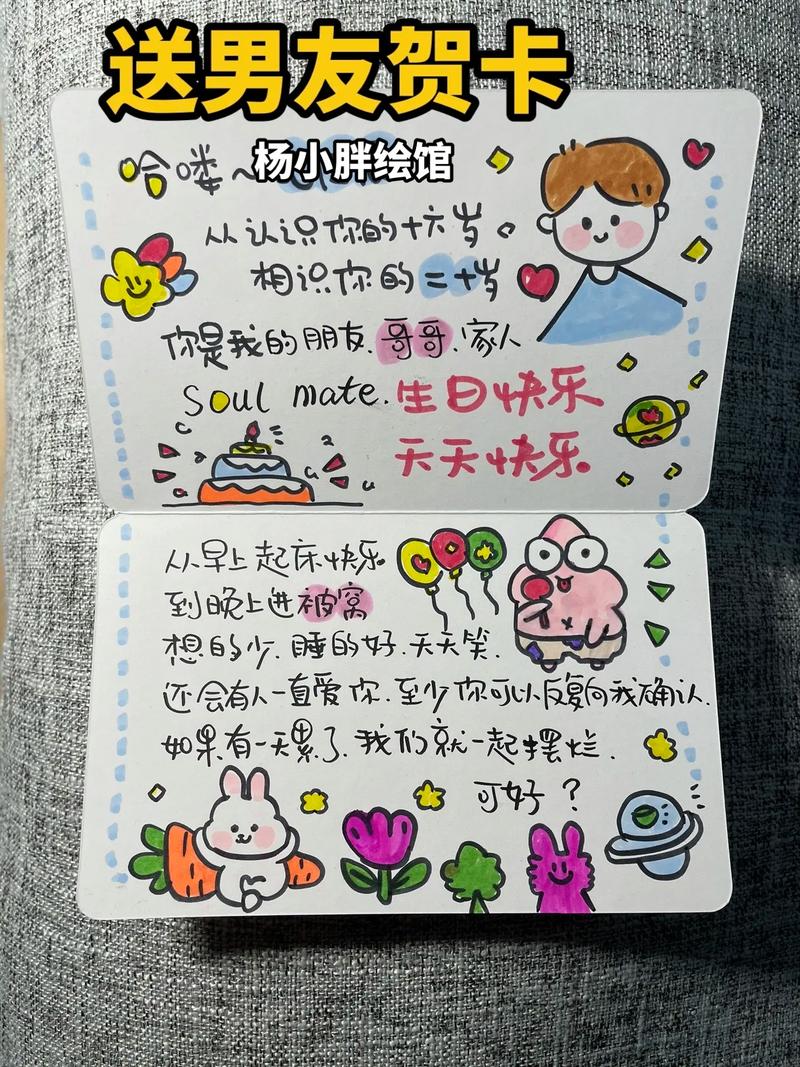 送男友贺卡
杨小胖绘馆
哈喽~
从认识你的十六岁。
相识你的二十岁
你是我的朋友.哥哥.家人
soul mate.生日快乐
天天快乐。
从早上起床快乐。
到晚上进被窝
想的少.睡的好.天天笑.
还会有人一直爱你.至少你可以反复向我确认.
如果有一天累了.我们就一起摆烂.
可好？